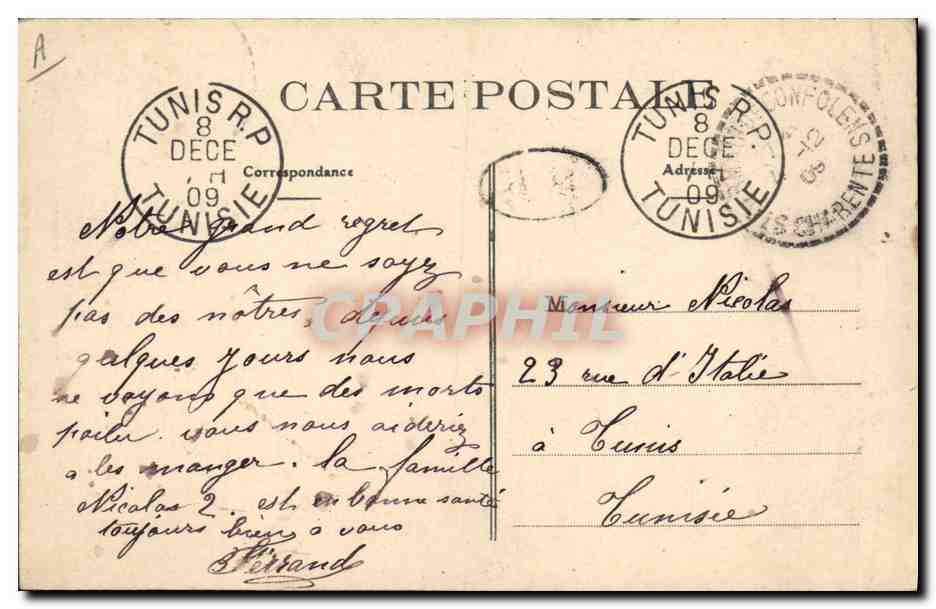 A
CARTE POSTALE
TUNIS R.P
8
DECE
09
TUNISIE
TUNIS R.P.
8
DECE
09
TUNISIE
CONFOLENS
CHARENTE
Correspondance
Adresse
Notre grand regret
est que vous ne soyez
pas des nôtres, depuis
quelques jours nous
ne voyons que des morts
poilu vous nous aideriez
a les manger. la famille
Nicolas 2. est en bonne santé
toujours bien à vous
Ferrand
Monsieur Nicolas
23 rue d'Italie
à Tunis
Tunisie
CPAPHIL